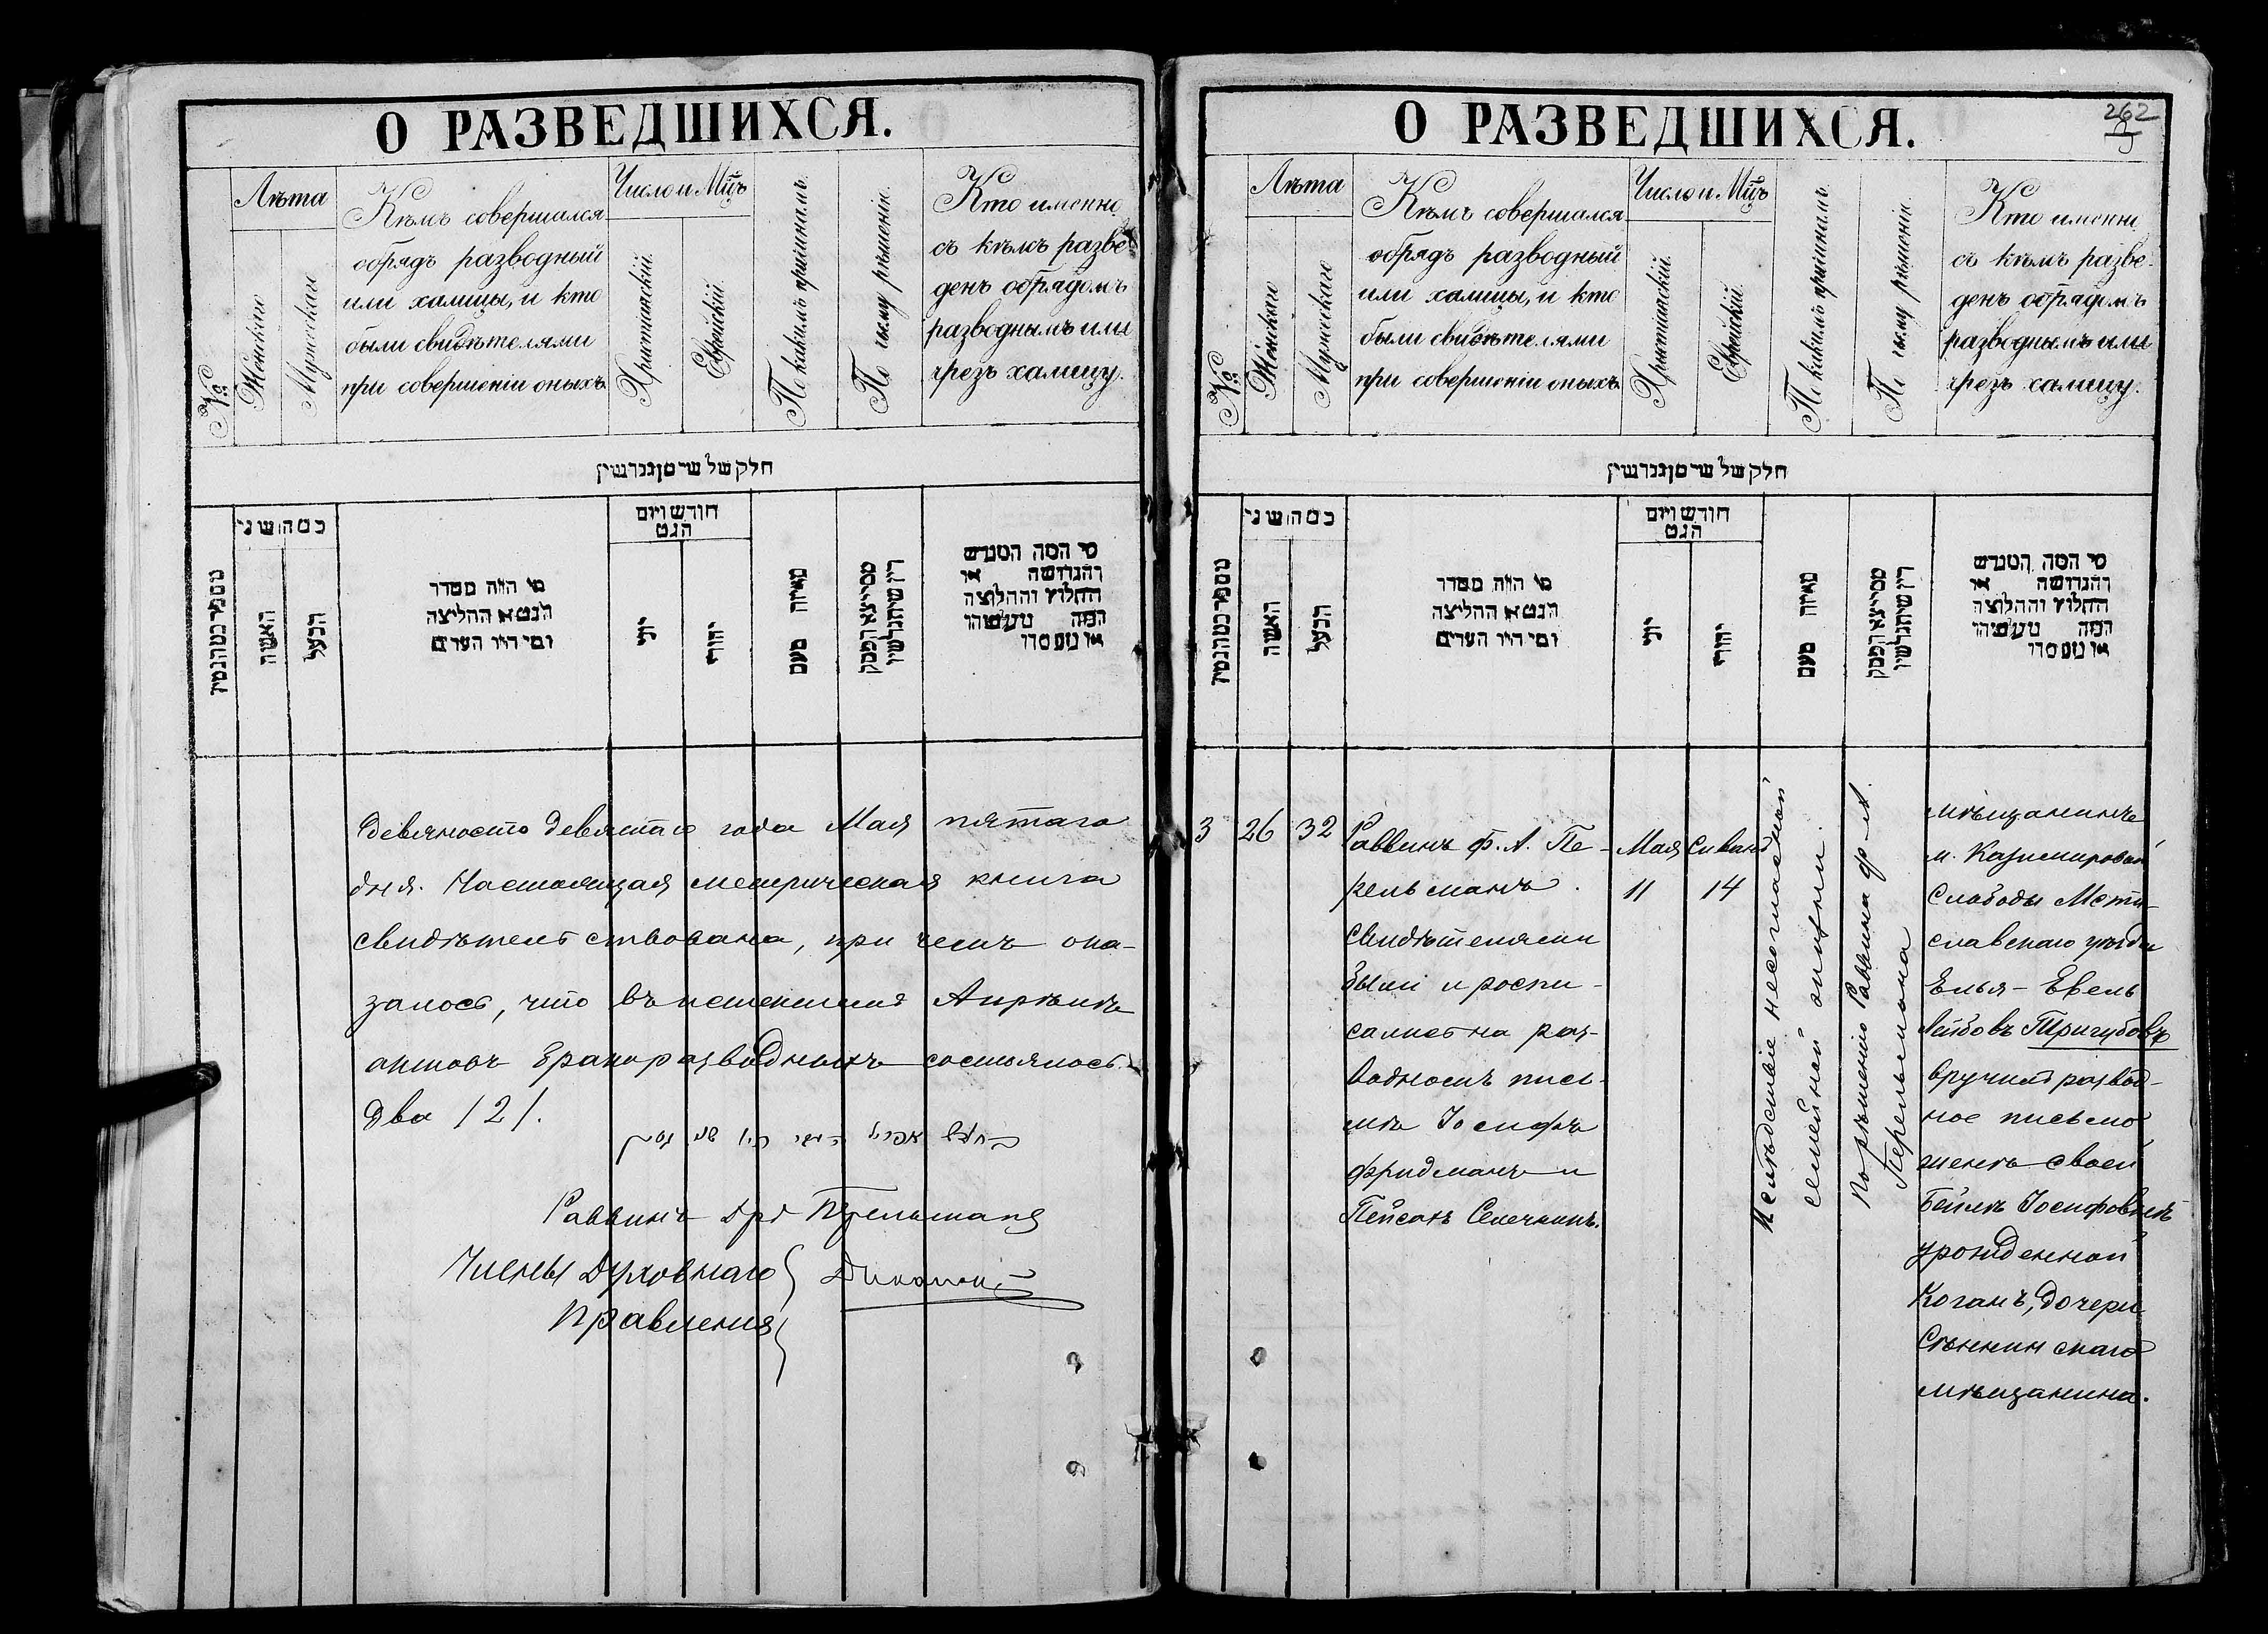 О РАЗВЕДШИХСЯ.
№
Лѣта
Женскаго
Мужескаго
Кѣмъ совершался
обрядъ разводный
или халицы, и кто
были свидѣтелями
при совершеніи оныхъ
Число и Мцъ
Христіанскій.
Еврейскій.
По какимъ причинамъ.
По чьему рѣшенію.
Кто именно
съ кѣмъ разве
денъ обрядомъ
разводнымъ или
чрезъ халицу.
כמה שני
האשה
הבעל
מי היה מסדר
הגט או החליצה
ומי היו העדים
חודש ויום
הגט
יוני
יהודי
מאיזה טעם
מי המה המגרש
והגרושה או
החלוץ והחלוצה
девяносто девятаго года Мая пятаго
дня. Настоящая метрическая книга
свидѣтельствована, при чемъ ока-
залось, что въ истекшемъ Апрѣлѣ
актовъ бракоразводныхъ состоялось
два /2/.
Раввинъ Дръ Перельманъ
Члены Духовнаго
Правленія
О РАЗВЕДШИХСЯ.
262
№
Лѣта
Женскаго
Мужескаго
Кѣмъ совершался
обрядъ разводный
или халицы, и кто
были свидѣтелями
при совершеніи оныхъ.
Число и Мцъ
Христіанскій.
Еврейскій.
По какимъ причинамъ.
По чьему рѣшенію.
Кто именно
съ кѣмъ разве-
денъ обрядомъ
разводнымъ или
чрезъ халицу.
כמה שני
האשה
הבעל
מי היה מסדר
הגט או החליצה
ומי היו העדים
חודש ויום
הגט
יוני
יהודי
מאיזה טעם
מי המה המגרש
והגרושה או
החלוץ והחלוצה
3 26 32
Раввинъ Ф. А. Пе-
рельманъ.
Свидѣтелями
были и роспи-
сались на раз-
водномъ пись-
мѣ Іосифъ
Фридманъ и
Пейсахъ Селечникъ.
Мая
11
Сиванъ
14
Вслѣдствіе несогласной
семейной жизни.
По рѣшенію Раввина Ф. А.
Перельмана
мѣщанинъ
м. Казимировой
Слободы Мсти-
славскаго уѣзда
Элья-Евель
Лейбовъ Тригубовъ
вручилъ развод-
ное письмо
женѣ своей
Бейлѣ Іосифовнѣ
урожденной
Коганъ, дочери
Сѣннинскаго
мѣщанина.